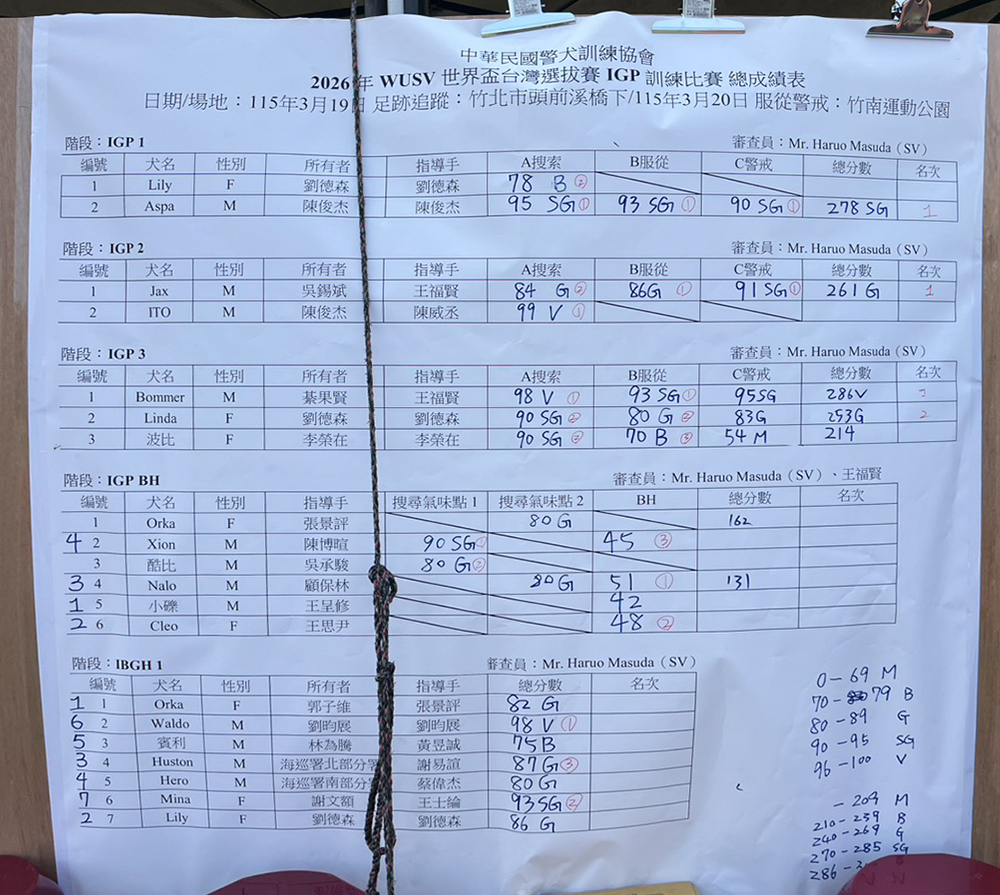 中華民國警犬訓練協會
2026年 WUSV 世界盃台灣選拔賽 IGP 訓練比賽 總成績表
日期/場地：115年3月19日 足跡追蹤：竹北市頭前溪橋下/115年3月20日 服從警戒：竹南運動公園
階段：IGP 1 審查員：Mr. Haruo Masuda（SV）
編號 犬名 性別 所有者 指導手 A搜索 B服從 C警戒 總分數 名次
1 Lily F 劉德森 劉德森 78 B ②
2 Aspa M 陳俊杰 陳俊杰 95 SG ① 93 SG ① 90 SG ① 278 SG 1
階段：IGP 2 審查員：Mr. Haruo Masuda（SV）
編號 犬名 性別 所有者 指導手 A搜索 B服從 C警戒 總分數 名次
1 Jax M 吳錫斌 王福賢 84 G ② 86G ① 91 SG ① 261 G 1
2 ITO M 陳俊杰 陳威丞 99 V ①
階段：IGP 3 審查員：Mr. Haruo Masuda（SV）
編號 犬名 性別 所有者 指導手 A搜索 B服從 C警戒 總分數 名次
1 Bommer M 綦果賢 王福賢 98 V ① 93 SG ① 95SG 286V
2 Linda F 劉德森 劉德森 90 SG ② 80 G ② 83G 253G 2
3 波比 F 李榮在 李榮在 90 SG ② 70 B ③ 54 M 214
階段：IGP BH 審查員：Mr. Haruo Masuda（SV）、王福賢
編號 犬名 性別 指導手 搜尋氣味點 1 搜尋氣味點 2 BH 總分數 名次
1 Orka F 張景評 80 G 162
4 2 Xion M 陳博暄 90 SG ① 45 ③
3 酷比 M 吳承駿 80 G ②
3 4 Nalo M 顧保林 80 G 51 ① 131
1 5 小礫 M 王呈修 42
2 6 Cleo F 王思尹 48 ②
階段：IBGH 1 審查員：Mr. Haruo Masuda（SV）
編號 犬名 性別 所有者 指導手 總分數 名次
1 1 Orka F 郭子維 張景評 82 G
6 2 Waldo M 劉昀展 劉昀展 98 V ①
5 3 賓利 M 林為騰 黃昱誠 75B
3 4 Huston M 海巡署北部分署 謝易諠 87 G ③
4 5 Hero M 海巡署南部分 蔡偉杰 80 G
7 6 Mina F 謝文額 王士綸 93SG ②
2 7 Lily F 劉德森 劉德森 86 G
0-69 M
70-79 B
80-89 G
90-95 SG
96-100 V
-209 M
210-239 B
240-269 G
270-285 SG
286-